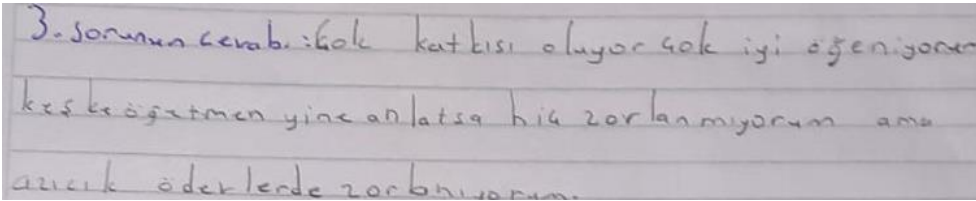 3. sorunun cevabı: Çok katkısı oluyor çok iyi öğeniyorum
keşke öğretmen yine anlatsa hiç zorlanmıyorum ama
azıcık öderlerde zorlanıyorum.